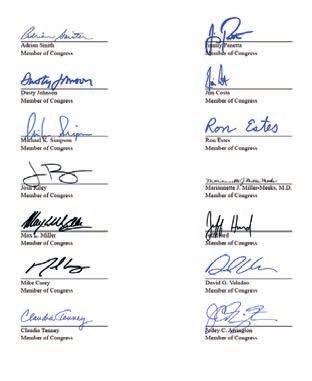 Adrian Smith
Adrian Smith
Member of Congress
Jimmy Panetta
Member of Congress
Dusty Johnson
Dusty Johnson
Member of Congress
Jim Costa
Member of Congress
Michael K. Simpson
Member of Congress
Ron Estes
Ron Estes
Member of Congress
Josh Riley
Member of Congress
Mariannette J. Miller-Meeks
Mariannette J. Miller-Meeks, M.D.
Member of Congress
Max L. Miller
Member of Congress
Jeff Hurd
Jeff Hurd
Member of Congress
Mike Carey
Member of Congress
David G. Valadao
Member of Congress
Claudia Tenney
Claudia Tenney
Member of Congress
Jodey C. Arrington
Member of Congress